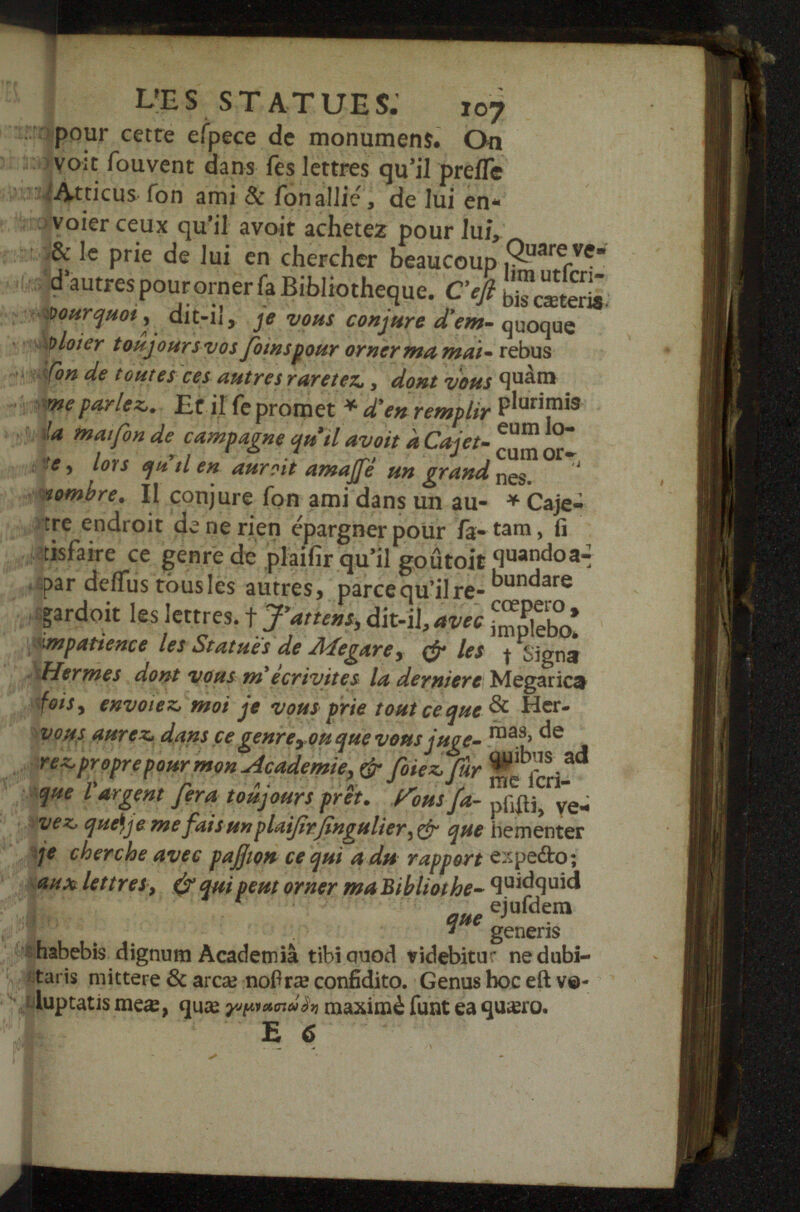 L'ES STATUES. 107
pour cette eſpece de monumens. On
voit ſouvent dans ſes lettres qu'il preſſe
Atticus ſon ami & ſon allié, de lui en-
voier ceux qu'il avoit achetez pour lui,
& le prie de lui en chercher beaucoup
d'autres pour orner ſa Bibliotheque. C'eſt
pourquoi, dit-il, je vous conjure d'em-
ploier toûjours vos ſoins pour orner ma mai-
ſon de toutes ces autres raretez, dont vous
me parlez. Et il ſe promet * d'en remplir
la maiſon de campagne qu'il avoit à Cajet-
te, lors qu'il en auroit amaſſé un grand
nombre. Il conjure ſon ami dans un au-
tre endroit de ne rien épargner pour ſa-
tisfaire ce genre de plaiſir qu'il goûtoit
par deſſus tous les autres, parce qu'il re-
gardoit les lettres. † J'attens, dit-il, avec
impatience les Statuës de Megare, & les
Hermes dont vous m'écrivites la derniere
fois, envoiez moi je vous prie tout ce que
vous aurez dans ce genre, ou que vous juge-
rez propre pour mon Academie, & ſoiez ſûr
que l'argent ſera toûjours prêt. Vous ſa-
vez que je me fais un plaiſir ſingulier, & que
je cherche avec paſſion ce qui a du rapport
aux lettres, & qui peut orner ma Bibliothe-
que
Quare ve-
lim utſcri-
bis cæteris
quoque
rebus
quàm
plurimis
eum lo-
cum or-
nes.
* Caje-
tam, ſi
quando a-
bundare
cœpero,
implebo.
† Signa
Megarica
& Her-
mas, de
quibus ad
me ſcri-
pſiſti, ve-
hementer
expecto;
quidquid
ejuſdem
generis
habebis dignum Academiâ tibi quod videbitur ne dubi-
taris mittere & arcæ noſtræ confidito. Genus hoc eſt vo-
luptatis meæ, quæ γυμνασιώδη maximè ſunt ea quæro.
E 6